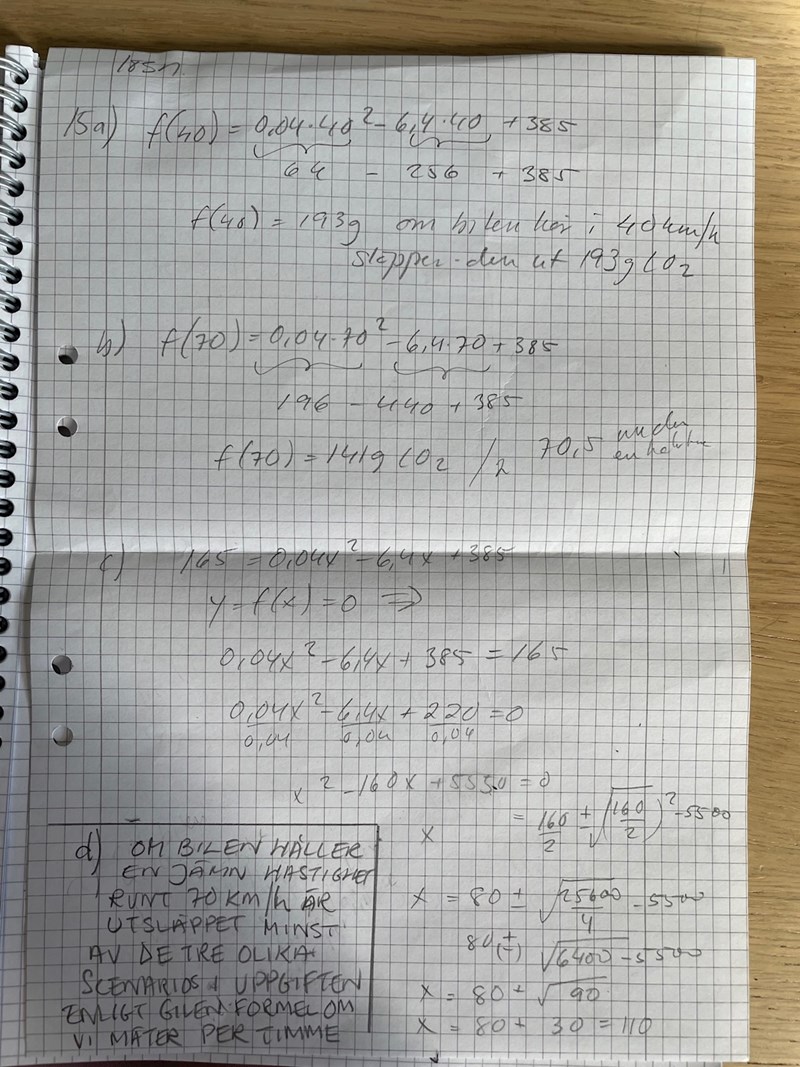 15a) f(40) = 0,04·40² - 6,4·40 + 385
64 - 256 + 385
f(40) = 193g om bilen kör i 40 km/h
släpper den ut 193g CO₂
b) f(70) = 0,04·70² - 6,4·70 + 385
196 - 440 + 385
f(70) = 141g CO₂ / 70,5
c) 165 = 0,04x² - 6,4x + 385
y = f(x) = 0 ⇒
0,04x² - 6,4x + 385 = 165
0,04x²/0,04 - 6,4x/0,04 + 220/0,04 = 0
x² - 160x + 5550 = 0
x = 160/2 ± √(160/2)² - 5500
x = 80 ± √25600/4 - 5500
80 ± (-) √6400 - 5500
x = 80 + √90
x = 80 + 30 = 110
d) OM BILEN HÅLLER
EN JÄMN HASTIGHET
RUNT 70 KM/h ÄR
UTSLÄPPET MINST
AV DE TRE OLIKA
SCENARIOS I UPPGIFTEN
ENLIGT GILEN FORMEL OM
VI MÄTER PER TIMME